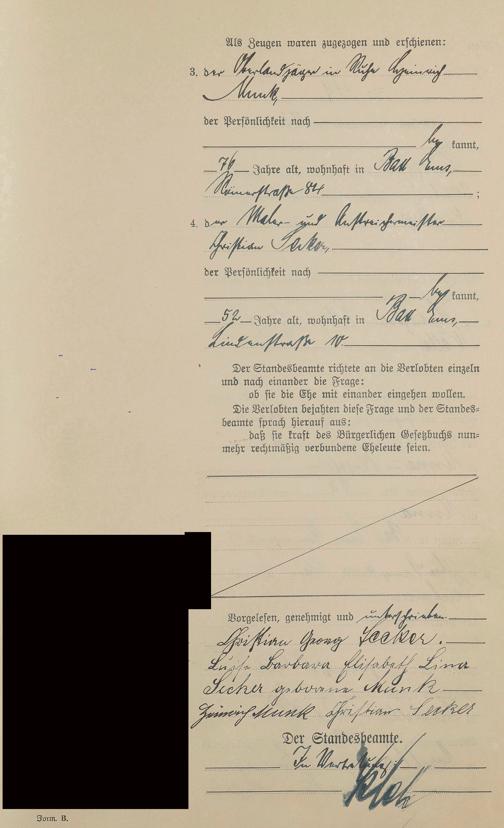 Als Zeugen waren zugezogen und erschienen:
3. der Oberlandjäger in Ruhe Heinrich
Munk,
der Persönlichkeit nach
be kannt,
76 Jahre alt, wohnhaft in Bad Ems,
Römerstraße 84 ;
4. der Maler- und Anstreichermeister
Christian Secker,
der Persönlichkeit nach
be kannt,
52 Jahre alt, wohnhaft in Bad Ems,
Lindenstraße 10
Der Standesbeamte richtete an die Verlobten einzeln
und nach einander die Frage:
ob sie die Ehe mit einander eingehen wollen.
Die Verlobten bejahten diese Frage und der Standes-
beamte sprach hierauf aus:
daß sie kraft des Bürgerlichen Gesetzbuchs nun-
mehr rechtmäßig verbundene Eheleute seien.
Vorgelesen, genehmigt und unterschrieben
Christian Georg Secker.
Luise Barbara Elisabeth Lina
Secker geborene Munk
Heinrich Munk Christian Secker
Der Standesbeamte.
In Vertretung:
Form. B.